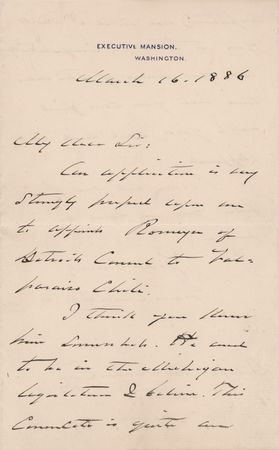 EXECUTIVE MANSION,
WASHINGTON.
March 16. 1886
My Dear Sir:
An application is very
strongly pressed upon me
to appoint Romeyn of
Detroit Consul to Val-
paraiso Chili.
I think you know
him somewhat. He used
to be in the Michigan
legislature I believe. This
Consulate is quite an